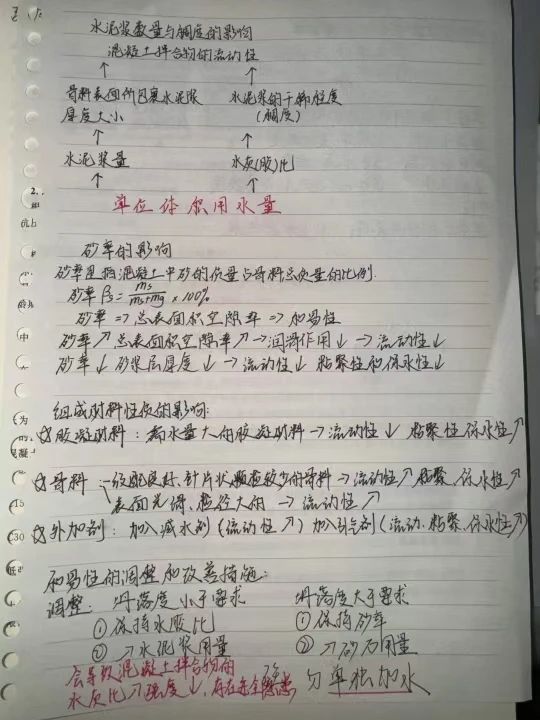 水泥浆数量与稠度的影响
混凝土拌合物的流动性
↑ ↑
骨料表面所包裹水泥浆 水泥浆的干稀程度
厚度大小 (稠度)
↑ ↑
水泥浆量 水灰(胶)比
↑ ↑
单位体积用水量
砂率的影响
砂率是指混凝土中砂的质量占骨料总质量的比例.
砂率 βs = ms/(ms+mg) × 100%
砂率 => 总表面积空隙率 => 和易性
砂率↗ 总表面积空隙率↗→润滑作用↓→流动性↓
砂率↓ 砂浆层厚度↓→流动性↓ 粘聚性和保水性↓
组成材料性质的影响:
胶凝材料: 需水量大的胶凝材料→流动性↓ 粘聚性保水性↗
骨料: 级配良好、针片状颗粒较少的骨料→流动性↗ 粘聚、保水性↗
表面光滑、粒径大的→流动性↗
外加剂: 加入减水剂(流动性↗) 加入引气剂(流动、粘聚、保水性↗)
和易性的调整和改善措施:
调整: 坍落度小于要求 坍落度大于要求
① 保持水胶比 ① 保持砂率
② ↗水泥浆用量 ② ↗砂石用量
会导致混凝土拌合物的
水灰比↗强度↓,存在安全隐患 勿单独加水